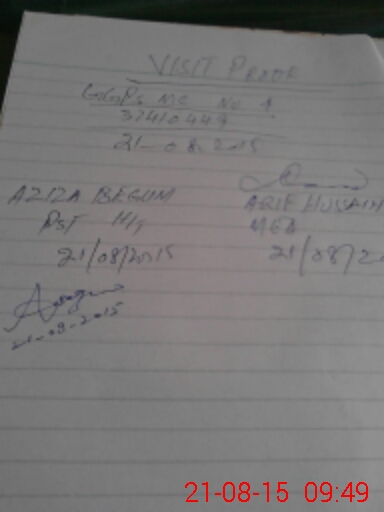 VISIT PROOF
GGPS MC No 1
37410449
21-08-2015
AZIZA BEGUM
PST H/T
21/08/2015
21-08-2015
ARIF HUSSAIN
MEA
21/08/20
21-08-15 09:49